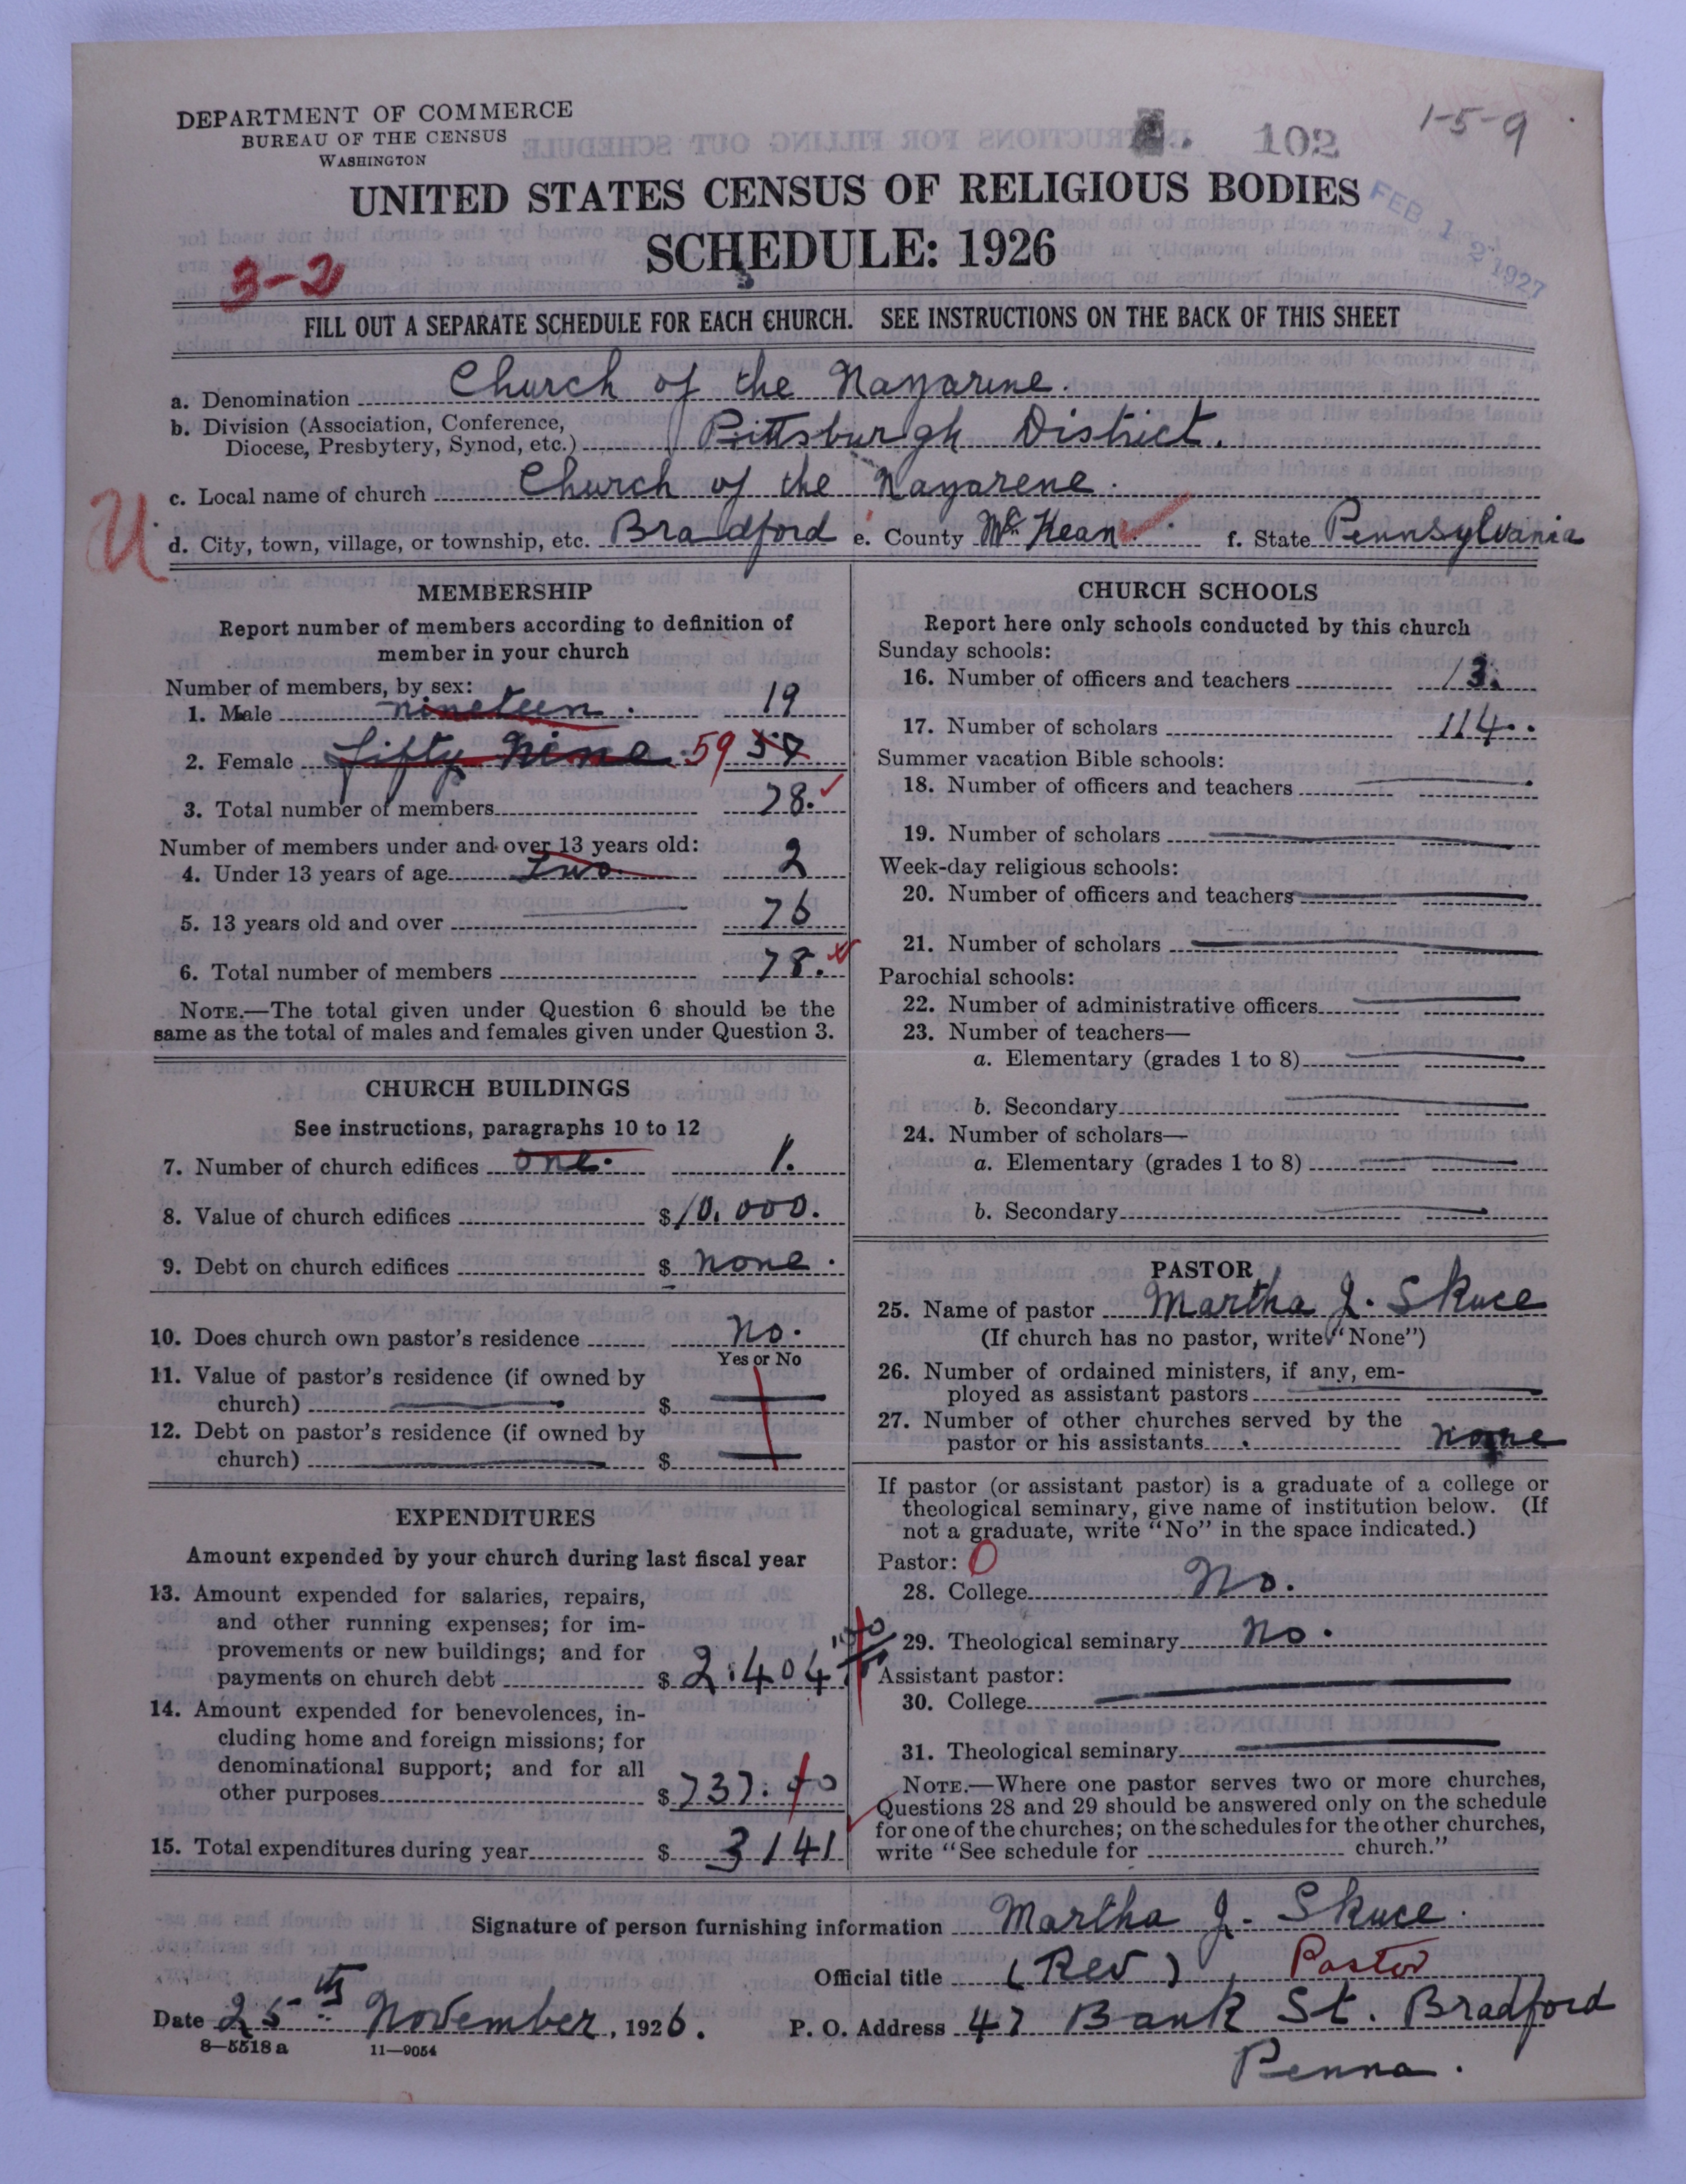 DEPARTMENT OF COMMERCE
BUREAU OF THE CENSUS
WASHINGTON
102
1-5-9
UNITED STATES CENSUS OF RELIGIOUS BODIES
FEB 12 1927
SCHEDULE: 1926
3-2
FILL OUT A SEPARATE SCHEDULE FOR EACH CHURCH. SEE INSTRUCTIONS ON THE BACK OF THIS SHEET
a. Denomination Church of the Nazarene.
b. Division (Association, Conference,
Diocese, Presbytery, Synod, etc.) Pittsburgh District.
c. Local name of church Church of the Nazarene.
U
d. City, town, village, or township, etc. Bradford e. County McKean f. State Pennsylvania
MEMBERSHIP
Report number of members according to definition of
member in your church
Number of members, by sex:
1. Male nineteen. 19
2. Female fifty nine. 59
3. Total number of members 78.
Number of members under and over 13 years old:
4. Under 13 years of age Two. 2
5. 13 years old and over 76
6. Total number of members 78.
NOTE.—The total given under Question 6 should be the
same as the total of males and females given under Question 3.
CHURCH BUILDINGS
See instructions, paragraphs 10 to 12
7. Number of church edifices one. 1.
8. Value of church edifices $10,000.
9. Debt on church edifices $ none.
10. Does church own pastor's residence No.
Yes or No
11. Value of pastor's residence (if owned by
church) $
12. Debt on pastor's residence (if owned by
church) $
EXPENDITURES
Amount expended by your church during last fiscal year
13. Amount expended for salaries, repairs,
and other running expenses; for im-
provements or new buildings; and for
payments on church debt $ 2.404
14. Amount expended for benevolences, in-
cluding home and foreign missions; for
denominational support; and for all
other purposes $ 737.40
15. Total expenditures during year $ 3141
CHURCH SCHOOLS
Report here only schools conducted by this church
Sunday schools:
16. Number of officers and teachers 13.
17. Number of scholars 114.
Summer vacation Bible schools:
18. Number of officers and teachers
19. Number of scholars
Week-day religious schools:
20. Number of officers and teachers
21. Number of scholars
Parochial schools:
22. Number of administrative officers
23. Number of teachers—
a. Elementary (grades 1 to 8)
b. Secondary
24. Number of scholars—
a. Elementary (grades 1 to 8)
b. Secondary
PASTOR
25. Name of pastor Martha J. Skuce
(If church has no pastor, write "None")
26. Number of ordained ministers, if any, em-
ployed as assistant pastors
27. Number of other churches served by the
pastor or his assistants none
If pastor (or assistant pastor) is a graduate of a college or
theological seminary, give name of institution below. (If
not a graduate, write "No" in the space indicated.)
Pastor: 0
28. College No.
29. Theological seminary No.
Assistant pastor:
30. College
31. Theological seminary
NOTE.—Where one pastor serves two or more churches,
Questions 28 and 29 should be answered only on the schedule
for one of the churches; on the schedules for the other churches,
write "See schedule for church."
Signature of person furnishing information Martha J. Skuce.
Official title (Rev) Pastor
Date 25th November, 1926. P. O. Address 47 Bank St. Bradford
8-5518a 11-9054
Penna.